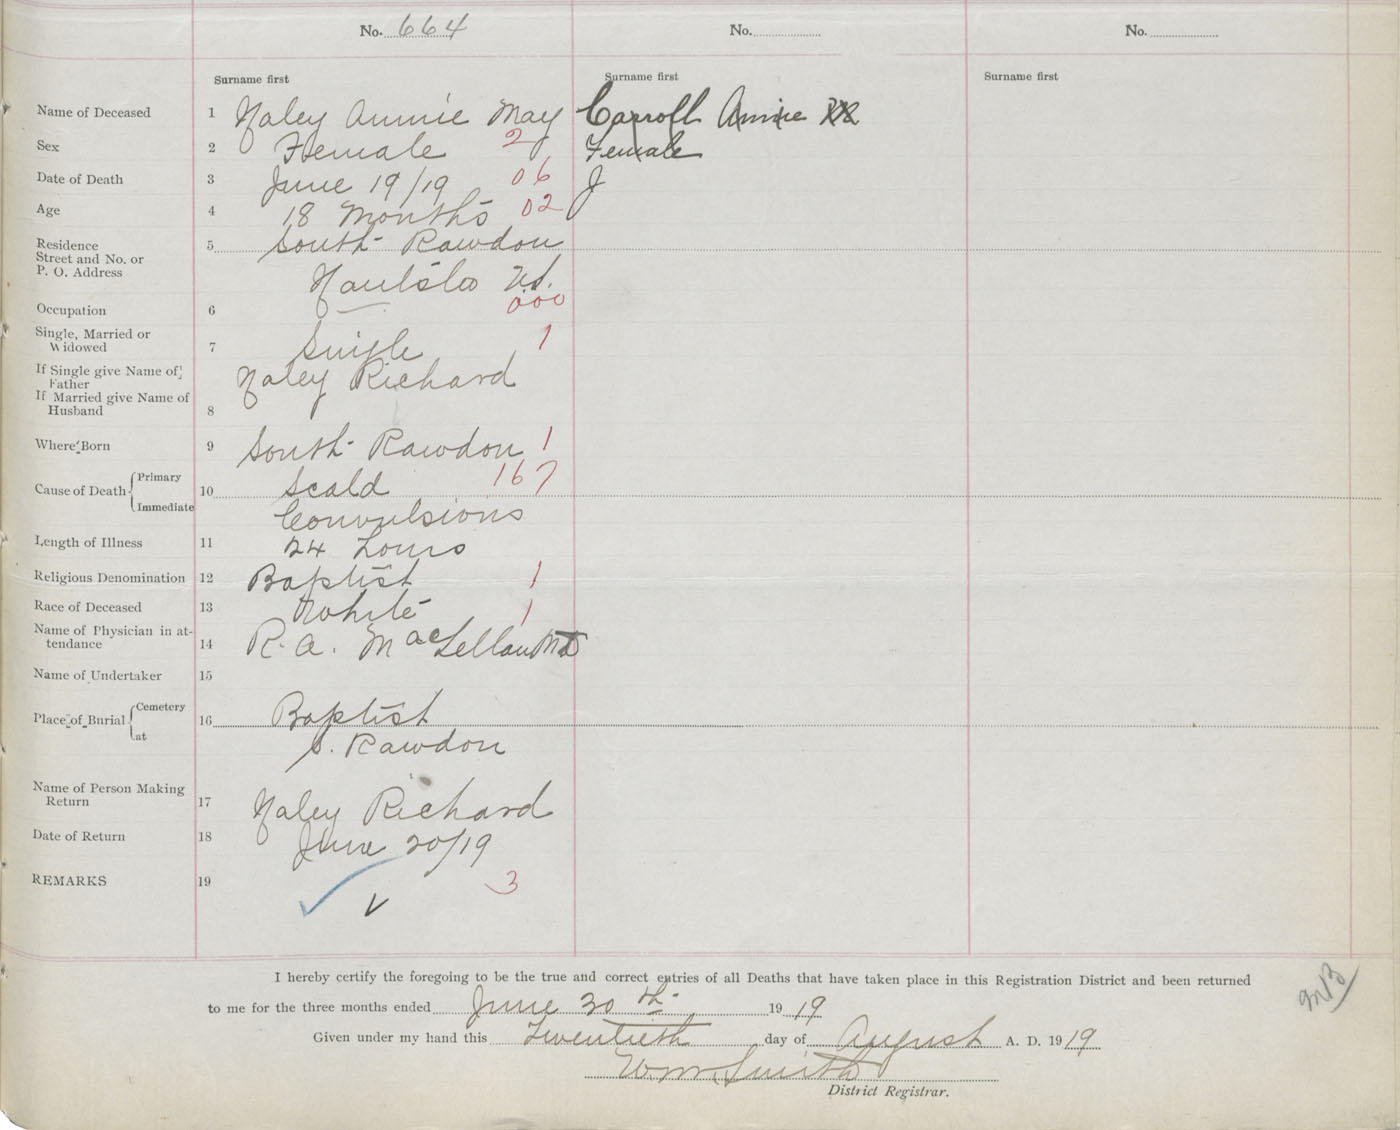 No. 664 No. No.
Surname first Surname first Surname first
Name of Deceased 1 Haley Annie May Carroll Annie
Sex 2 Female 2 Female
Date of Death 3 June 19/19 06 J
Age 4 18 Months 02
Residence 5 South Rawdon
Street and No. or
P. O. Address Hants Co N.S.
Occupation 6 — 000
Single, Married or
Widowed 7 Single 1
If Single give Name of Father Haley Richard
If Married give Name of Husband 8
Where Born 9 South Rawdon 1
Cause of Death Primary 10 Scald 167
Immediate Convulsions
Length of Illness 11 24 hours
Religious Denomination 12 Baptist 1
Race of Deceased 13 White 1
Name of Physician in attendance 14 R. A. MacLellan MD
Name of Undertaker 15
Place of Burial Cemetery 16 Baptist
at S. Rawdon
Name of Person Making
Return 17 Haley Richard
Date of Return 18 June 20/19
REMARKS 19 3
I hereby certify the foregoing to be the true and correct entries of all Deaths that have taken place in this Registration District and been returned
to me for the three months ended June 30th 1919
Given under my hand this Twentieth day of August A. D. 1919
Wm. Smith
District Registrar.